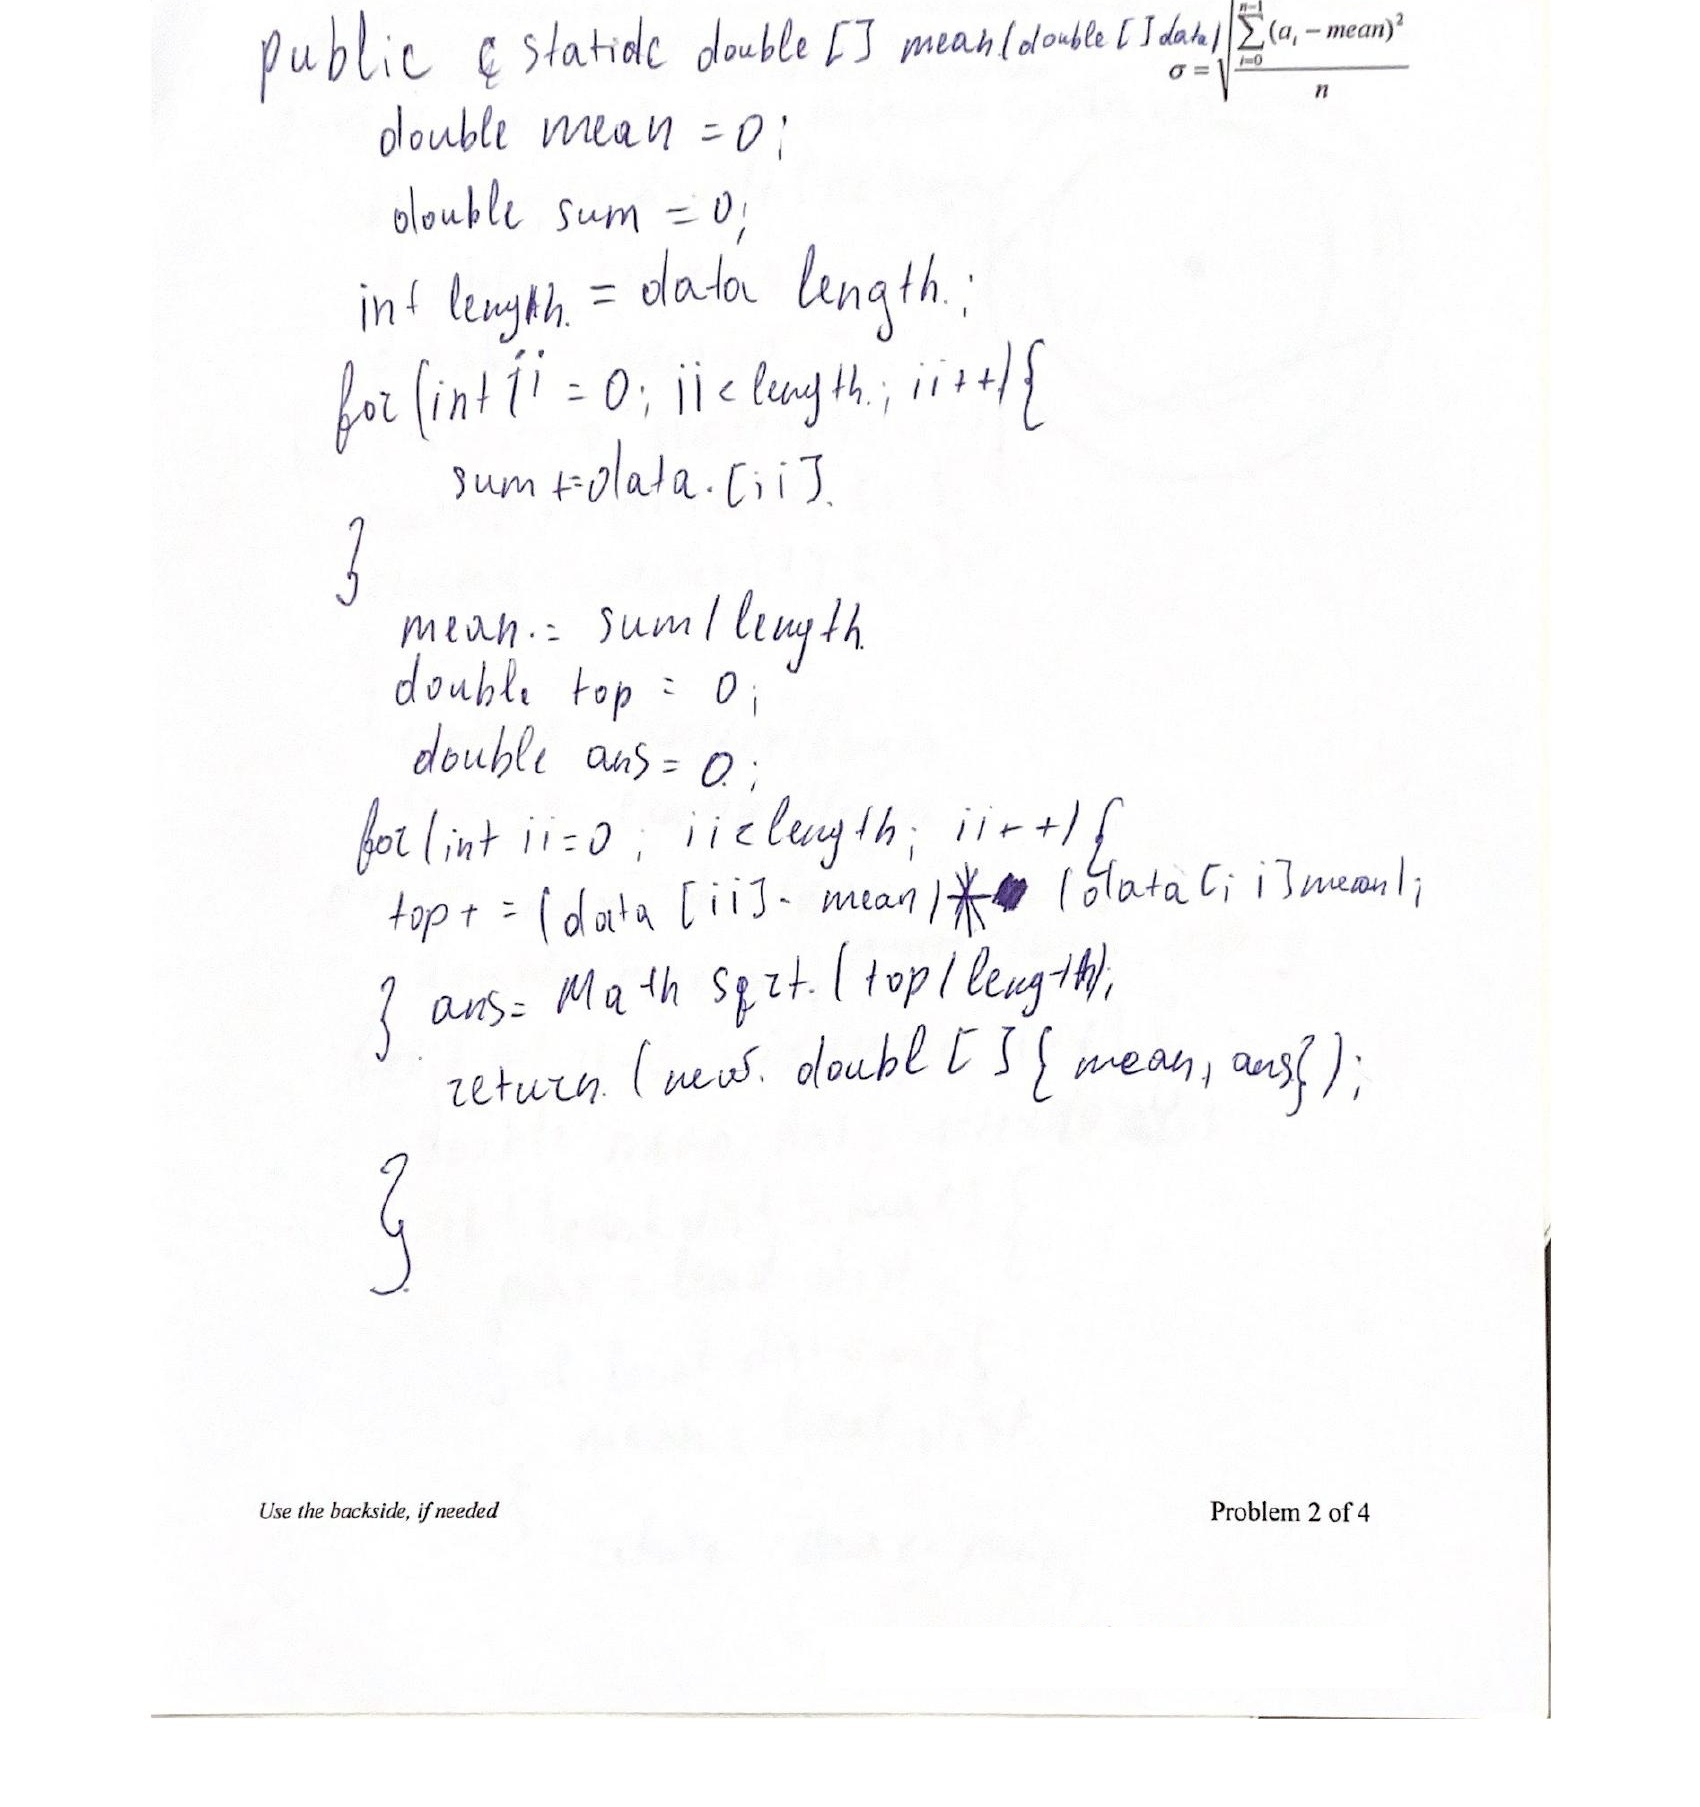 public ¢ statidc double [] mean(double [] data) σ = √ Σ (a_i – mean)² / n
n–1
i=0
double mean = 0;
double sum = 0;
int length. = data length.;
for (int ii = 0; ii < length.; ii++) {
sum += data. [ii].
}
mean. = sum / length.
double top = 0;
double ans = 0.;
for (int ii = 0; ii < length; ii++) {
top + = (data [ii] - mean) * (data [ii] mean);
} ans = Math sqrt. (top / length);
return. (new. doubl [] { mean, ans});
}
Use the backside, if needed
Problem 2 of 4